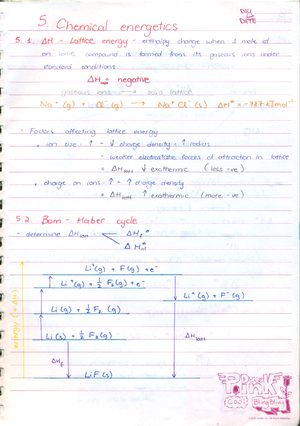 5. Chemical energetics
DAY
DATE
5.1. ΔH - Lattice energy - enthalpy change when 1 mole of
an ionic compound is formed from its gaseous ions under
standard conditions.
ΔHlatt = negative
gaseous ions → solid lattice
Na⁺ (g) + Cl⁻ (g) → Na⁺ Cl⁻ (s) ΔH° = -787 kJ mol⁻¹
• Factors affecting lattice energy
• ion size : ↑ = ↓ charge density = ↑ radius
• weaker electrostatic forces of attraction in lattice
= ΔHlatt ↓ exothermic (less -ve)
• charge on ions : ↑ = ↑ charge density
= ΔHlatt ↑ exothermic (more -ve)
5.2. Born - Haber cycle
- determine ΔHlatt
ΔHf°
ΔHat°
Li⁺(g) + F(g) + e⁻
Li⁺(g) + ½ F₂(g) + e⁻
Li⁺(g) + F⁻(g)
Li(g) + ½ F₂ (g)
Li(s) + ½ F₂(g)
ΔHlatt
ΔHf
LiF(s)
Pink
Cool
BlingBling